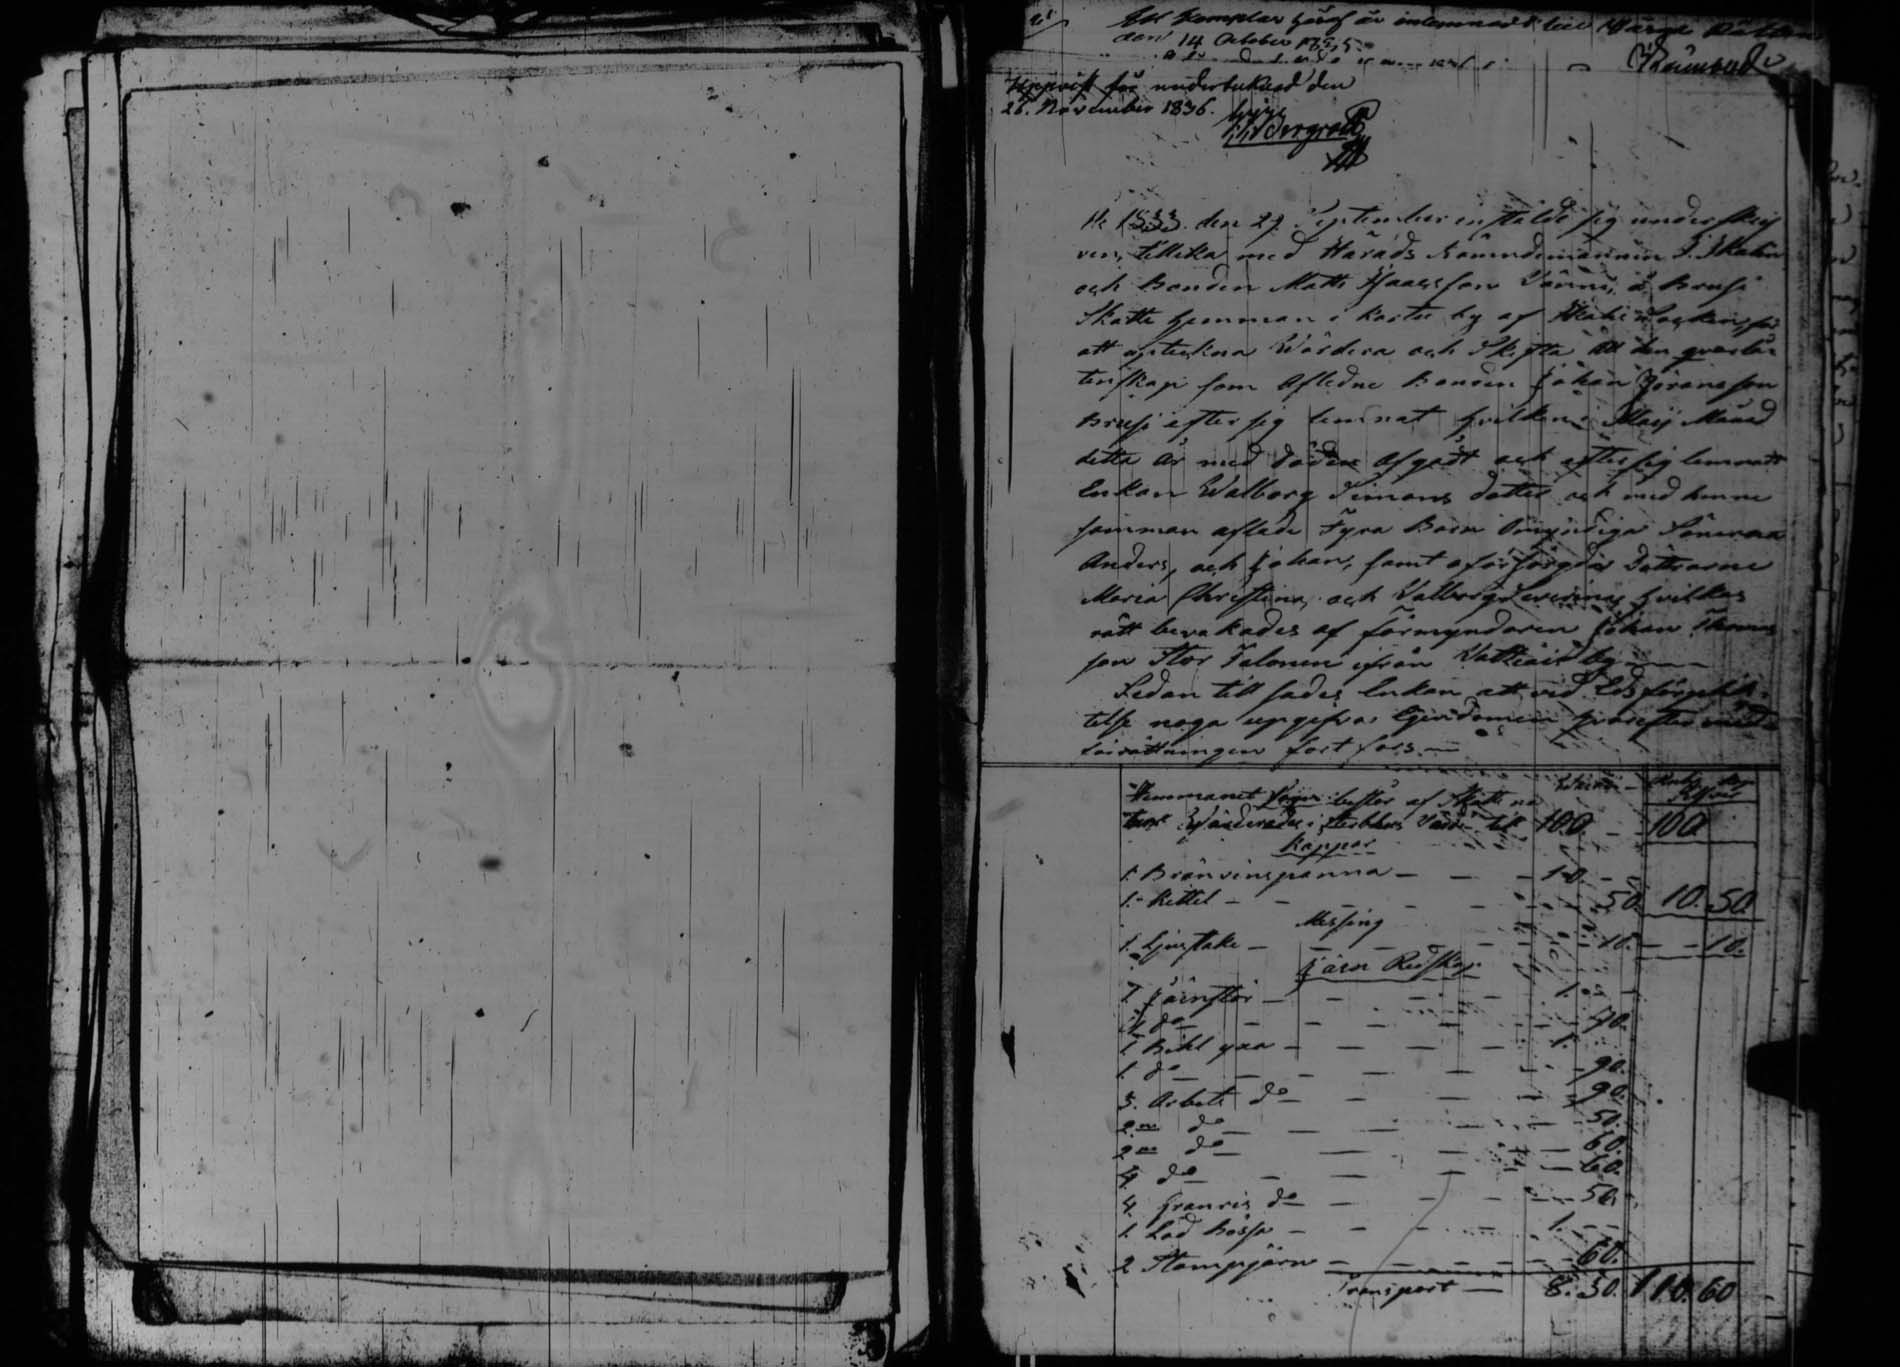 Ett Exemplar häraf är inlemnadt till Härads Rätten
den 14 October
Uppvist för underteknad den
26. November 1836.
År 1833 den 27 September instälde sig underskrif
ven, tillika med Härads Nämndemannen
och Bonden Matts Isaacsson å Brusi
Skatte hemman i by af Socken, för
att upteckna Wärdera och Skifta all den qvarlå
tenskap som Afledne Bonden Johan Göransson
Brusi efter sig lemnat hvilken i Maij Månad
detta År med döden Afgådt och efter sig lemnatt
Enkan Walborg Simons dotter och med henne
samman aflade Fyra Barn Omyndiga Sönerna
Anders, och Johan, samt oförsörgda Döttrarne
Maria Christina, och Valborg hvilkas
rätt bevakades af Förmyndaren Johan Thomas
son Stor ifrån by
Sedan tillsades Enkan att vid Edsförpligt
telse noga uppgifva Egendomen hvarefter med
förrättningen fortfors
Hemmanet består af Skatte na
tur Wärderades i Sterbhus Värde til 100. — 100
Koppar
1. Bränvinspanna — — — 10. —
1. Kittel — — — 50 10. 50.
Messing
1. Ljusstake — — — 10. — 10.
Järn Redskap
1. Järnstör — — — 1. —
1. do — — — 40.
1. Bihl yxa — — — 1.
1. do — — — 90.
3. Arbets do — — — 90.
2ne do — — — 50.
2ne do — — — 60.
4. do — — — 60.
4. Granris do — — — 50.
1. Lod Bössa — — — 1. —
2 Stampjärn — — — 60.
Transport — 8. 50. 110. 60